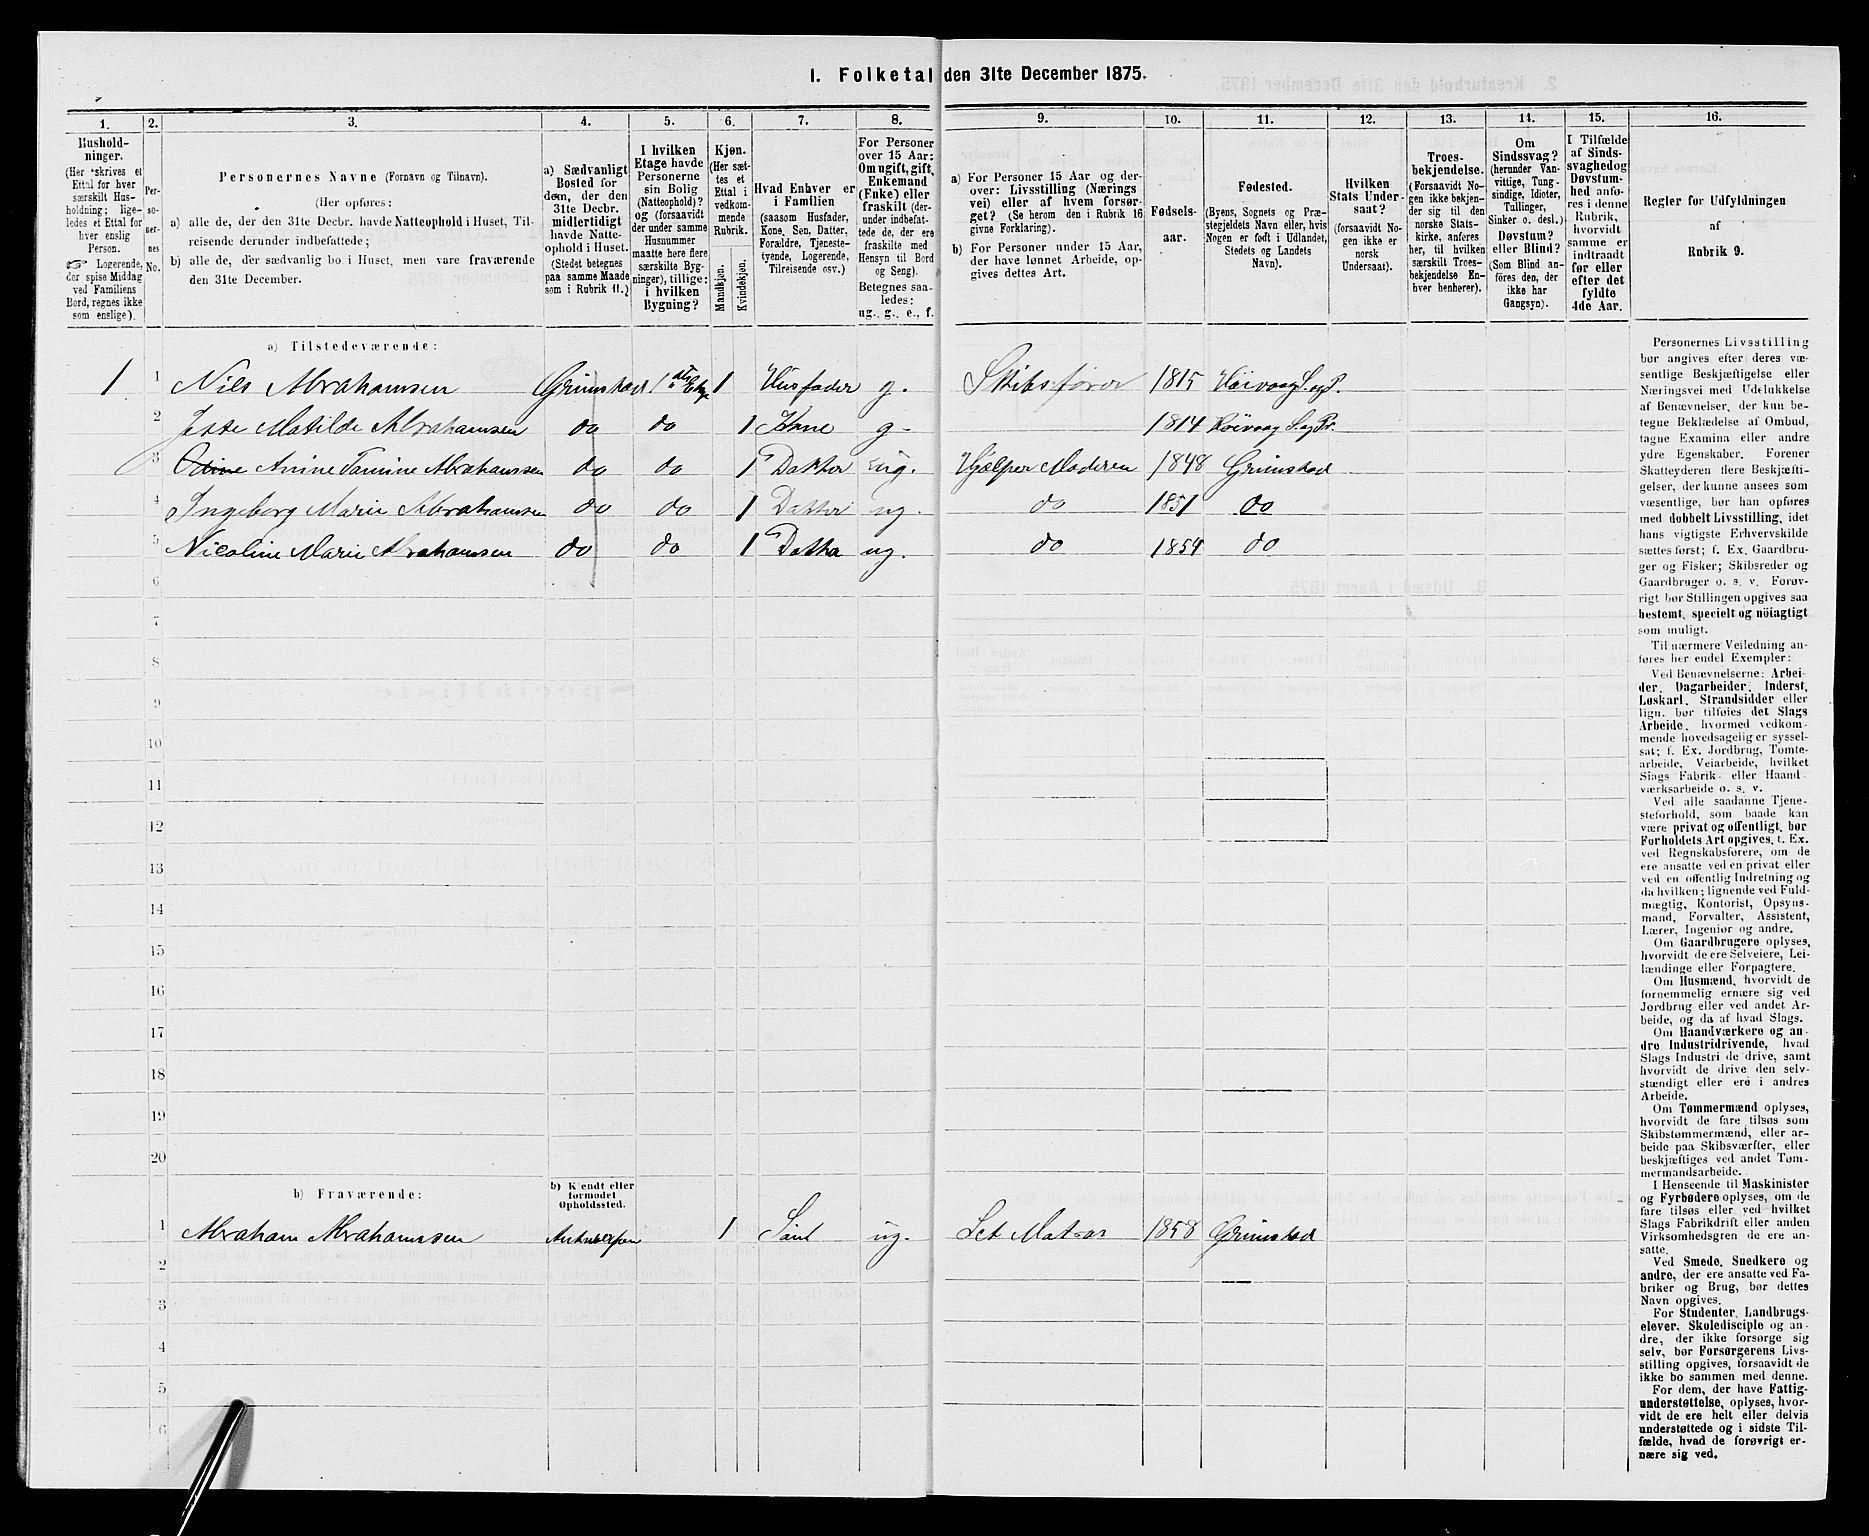 1. Folketal den 31te December 1875.
1.
2.
3.
4.
5.
6.
7.
8.
9.
10.
11.
12.
13.
14.
15.
16.
Hushold-
ninger.
(Her skrives et
Ettal for hver
særskilt Hus-
holdning; lige-
ledes et Ettal for
hver enslig
Person.
☞ Logerende,
der spise Middag
ved Familiens
Bord, regnes ikke
som enslige).
Per-
so-
ner-
nes
No.
Personernes Navne (Fornavn og Tilnavn).
(Her opføres:
a) alle de, der den 31te Decbr. havde Natteophold i Huset, Til-
reisende derunder indbefattede;
b) alle de, der sædvanlig bo i Huset, men vare fraværende
den 31te December.
a) Sædvanligt
Bosted for
dem, der den
31te Decbr.
midlertidigt
havde Natte-
ophold i Huset.
(Stedet betegnes
paa samme Maade
som i Rubrik 11.)
I hvilken
Etage havde
Personerne
sin Bolig
(Natteophold)?
og (forsaavidt
der under samme
Husnummer
maatte høre flere
særskilte Byg-
ninger), tillige:
i hvilken
Bygning?
Kjøn.
(Her sæt-
tes et
Ettal i
vedkom-
mende
Rubrik.
Mandkjøn.
Kvindekjøn.
Hvad Enhver er
i Familien
(saasom Husfader,
Kone, Søn, Datter,
Forældre, Tjeneste-
tyende, Logerende,
Tilreisende osv.)
For Personer
over 15 Aar:
Om ugift, gift,
Enkemand
(Enke) eller
fraskilt (der-
under indbefat-
tede de, der ere
fraskilte med
Hensyn til Bord
og Seng).
Betegnes saa-
ledes:
ug., g., e., f.
a) For Personer 15 Aar og der-
over: Livsstilling (Nærings
vei) eller af hvem forsør-
get? (Se herom den i Rubrik 16
givne Forklaring).
b) For Personer under 15 Aar,
der have lønnet Arbeide, op-
gives dettes Art.
Fødsels-
aar.
Fødested.
(Byens, Sognets og Præ-
stegjeldets Navn eller, hvis
Nogen er født i Udlandet,
Stedets og Landets
Navn).
Hvilken
Stats Under-
saat?
(forsaavidt No-
gen ikke er
norsk
Undersaat).
Troes-
bekjendelse.
(Forsaavidt No-
gen ikke bekjen-
der sig til den
norske Stats-
kirke, anføres
her, til hvilken
særskilt Troes-
bekjendelse En-
hver henhører).
Om
Sindssvag?
(herunder Van-
vittige, Tung-
sindige, Idioter,
Tullinger,
Sinker o. desl.)
Døvstum?
eller Blind?
(Som Blind an-
føres den, der
ikke har
Gangsyn).
I Tilfælde
af Sinds-
svaghedog
Døvstum-
hed anfø-
res i denne
Rubrik,
hvorvidt
samme er
indtraadt
før eller
efter det
fyldte
4de Aar.
Regler for Udfyldningen
af
Rubrik 9.
a) Tilstedeværende:
1 1 Nils Abrahamsen Grimstad 1ste Etage 1 Husfader g. Skibsfører 1815 Høivaag S. og P.
2 Matilde Abrahamsen do do 1 Kone g. 1814 Høivaag S. og Pr.
3 Anine Tamine Abrahamssen do do 1 Dakter ug. Hjælper Moderen 1848 Grimstad
4 Ingeborg Marie Abrahamssen do do 1 Dakter ug. do 1851 do
5 Nicoline Marie Abrahamssen do do 1 ug. do 1854 do
6
7
8
9
10
11
12
13
14
15
16
17
18
19
20
b) Fraværende:
b) Kjendt eller
formodet
Opholdssted.
1 Abraham Abrahamssen Antwerpen 1 Sønn ug. Let Matros 1858 Grimstad
2
3
4
5
6
Personernes Livsstilling
bør angives efter deres væ-
sentlige Beskjæftigelse eller
Næringsvei med Udelukkelse
af Benævnelser, der kun be-
tegne Beklædelse af Ombud,
tagne Examina eller andre
ydre Egenskaber. Forener
Skatteyderen flere Beskjæfti-
gelser, der kunne ansees som
væsentlige, bør han opføres
med dobbelt Livsstilling, idet
hans vigtigste Erhvervskilde
sættes først; f. Ex. Gaardbru-
ger og Fisker; Skibsreder og
Gaardbruger o. s. v. Forøv-
rigt bør Stillingen opgives saa
bestemt, specielt og nöiagtigt
som muligt.
Til nærmere Veiledning an-
føres her endel Exempler:
Ved Benævnelserne: Arbei-
der, Dagarbeider, Inderst,
Løskarl, Strandsidder eller
lign. bør tilføies det Slags
Arbeide, hvormed vedkom-
mende hovedsagelig er syssel-
sat; f. Ex. Jordbrug, Tomte-
arbeide, Veiarbeide, hvilket
Slags Fabrik- eller Haand
værksarbeide o. s. v.
Ved alle saadanne Tjene-
steforhold, som baade kan
være privat og offentligt, bør
Forholdets Art opgives, t. Ex.
ved Regnskabsførere, om de
ere ansatte ved en privat eller
ved en offentlig Indretning og
da hvilken; lignende ved Fuld-
mægtig, Kontorist, Opsyns-
mand, Forvalter, Assistent,
Lærer, Ingeniør og andre.
Om Gaardbrugere oplyses,
hvorvidt de ere Selveiere, Lei-
lændinge eller Forpagtere.
Om Husmænd, hvorvidt de
fornemmelig ernære sig ved
Jordbrug eller ved andet Ar-
beide, og da af hvad Slags.
Om Haandværkere og an-
dre Industridrivende, hvad
Slags Industri de drive, samt
hvorvidt de drive den selv-
stændigt eller ere i andres
Arbeide.
Om Tømmermænd oplyses,
hvorvidt de fare tilsøs som
Skibstømmermænd, eller ar-
beide paa Skibsværfter, eller
beskjæftiges ved andet Tøm-
mermandsarbeide.
I Henseende til Maskinister
og Fyrbødere oplyses, om de
fare tilsøs eller ved hvilket
Slags Fabrikdrift eller anden
Virksomhedsgren de ere an-
satte.
Ved Smede, Snedkere og
andre, der ere ansatte ved Fa-
briker og Brug, bør dettes
Navn opgives.
For Studenter, Landbrugs-
elever, Skoledisciple og an-
dre, der ikke forsørge sig
selv, bør Forsørgerens Livs-
stilling opgives, forsaavidt de
ikke bo sammen med denne.
For dem, der have Fattig-
understøttelse, oplyses, hvor-
vidt de ere helt eller delvis
understøttede og i sidste Til-
fælde, hvad de forøvrigt er-
nære sig ved.